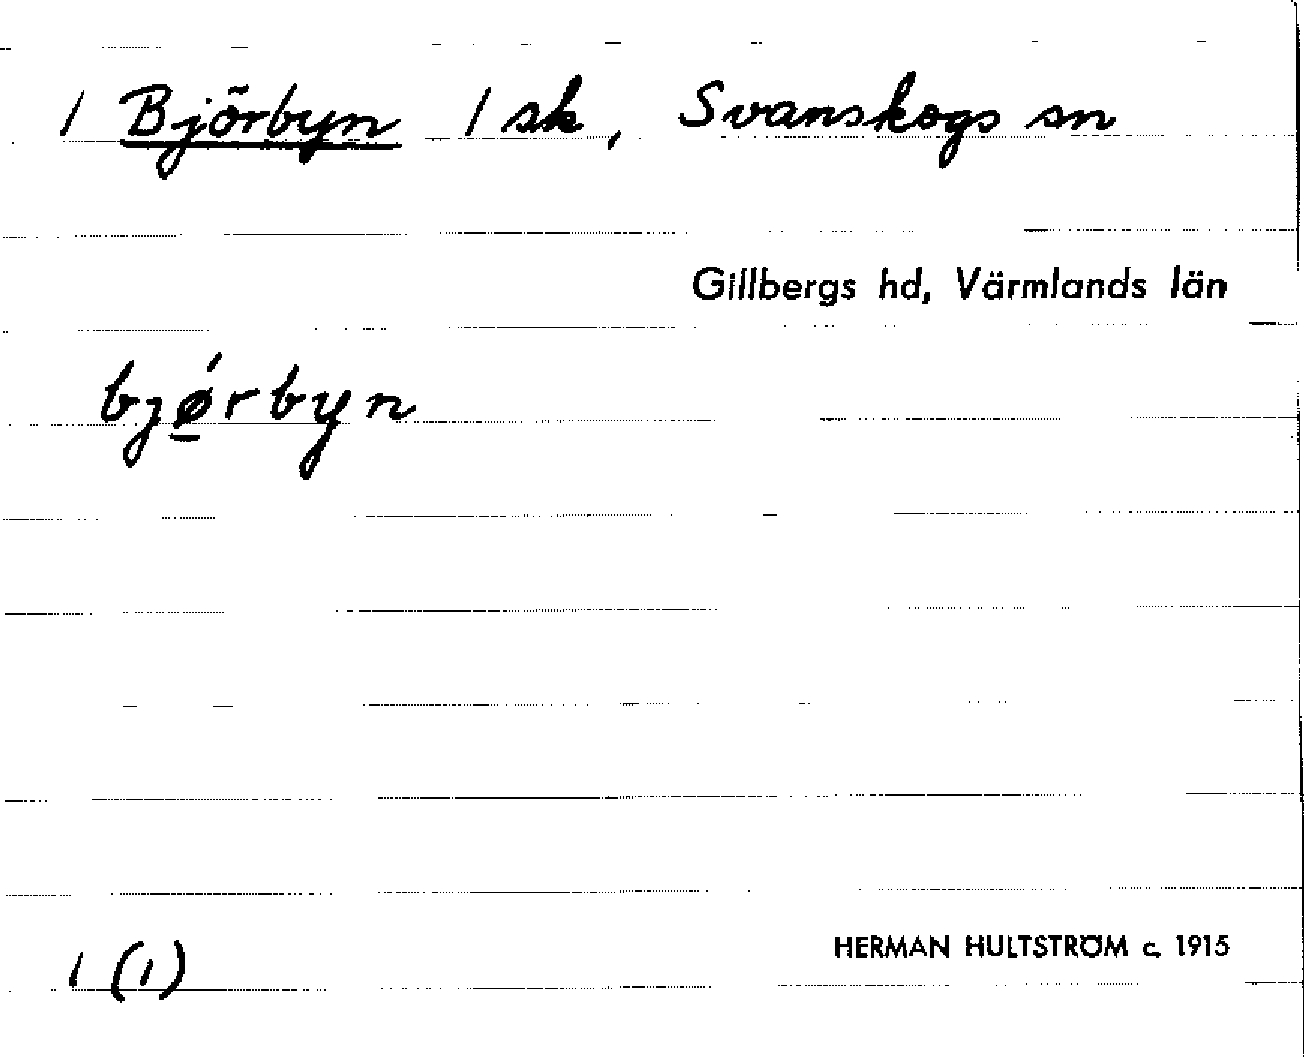 1 Björbyn 1 sk, Svanskogs sn
Gillbergs hd, Värmlands län
bjǿ̱rbyn
1 (1)
HERMAN HULTSTRÖM c. 1915